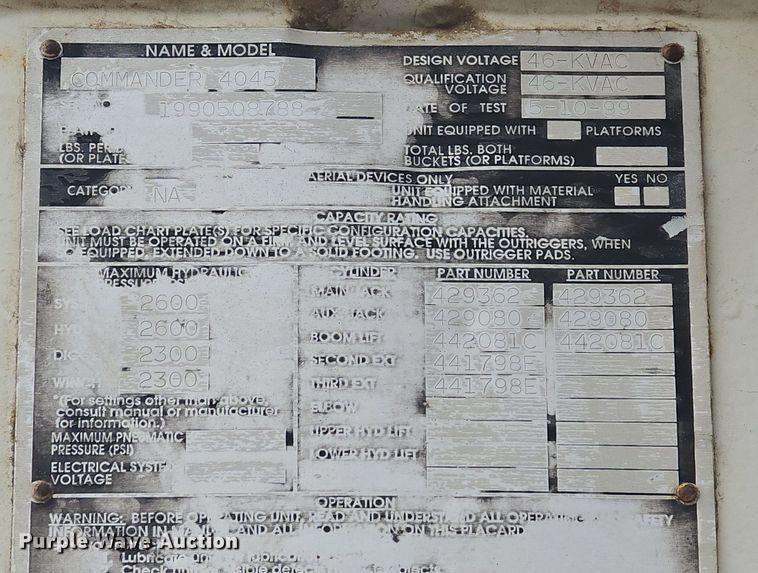 NAME & MODEL
COMMANDER 4045
1990508788
LBS. PER
(OR PLATF
DESIGN VOLTAGE 46-KVAC
QUALIFICATION VOLTAGE 46-KVAC
OF TEST 5-10-99
UNIT EQUIPPED WITH PLATFORMS
TOTAL LBS. BOTH
BUCKETS (OR PLATFORMS)
AERIAL DEVICES ONLY
YES NO
CATEGOR NA
UNIT EQUIPPED WITH MATERIAL
HANDLING ATTACHMENT
CAPACITY RATING
SEE LOAD CHART PLATE(S), FOR SPECIFIC CONFIGURATION CAPACITIES.
UNIT MUST BE OPERATED ON A FIRM AND LEVEL SURFACE WITH THE OUTRIGGERS, WHEN
SO EQUIPPED, EXTENDED DOWN TO A SOLID FOOTING. USE OUTRIGGER PADS.
MAXIMUM HYDRAULIC
PRESSURE
SYS 2600
HYD 2600
DIG 2300
WINCH 2300
*(For settings other than above,
consult manual or manufacturer
for information.)
MAXIMUM PNEUMATIC
PRESSURE (PSI)
ELECTRICAL SYSTEM
VOLTAGE
CYLINDER PART NUMBER PART NUMBER
MAIN JACK 429362 429362
AUX. JACK 429080 429080
BOOM LIFT 442081C 442081C
SECOND EXT 441798E
THIRD EXT 441798E
ELBOW
UPPER HYD LIFT
LOWER HYD LIFT
OPERATION
WARNING: BEFORE OPERATING UNIT, READ AND UNDERSTAND ALL OPERATING SAFETY
INFORMATION IN MANUAL AND ALL INFORMATION ON THIS PLACARD
Purple Wave Auction
1. Lubricate unit
Check unit visible defects objects